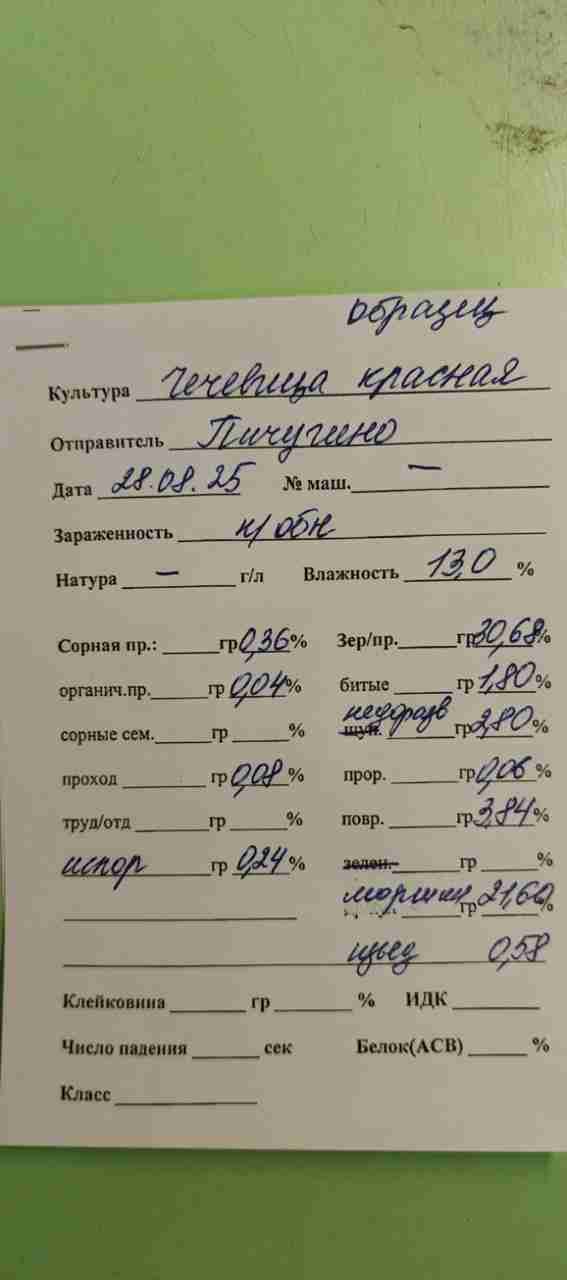 образец
Культура чечевица красная
Отправитель Пичугино
Дата 28.08.25 № маш. —
Зараженность н/обн
Натура — г/л Влажность 13,0 %
Сорная пр.: гр 0,36 % Зер/пр. гр 30,68 %
органич.пр. гр 0,04 % битые гр 1,80 %
сорные сем. гр % недоразв щуп. гр 2,80 %
проход гр 0,08 % прор. гр 0,06 %
труд/отд гр % повр. гр 3,84 %
испор гр 0,24 % зелен. гр %
морщин гр 21,60 %
изъед 0,58
Клейковина гр % ИДК
Число падения сек Белок(АСВ) %
Класс